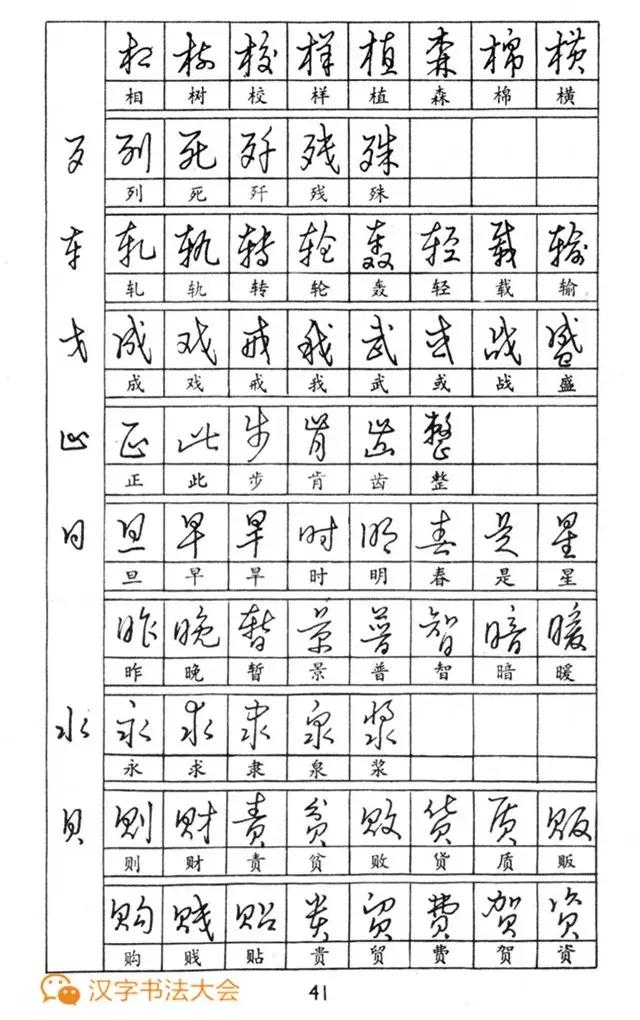 相 树 校 样 植 森 棉 横
相 树 校 样 植 森 棉 横
歹 列 死 歼 残 殊
列 死 歼 残 殊
车 轧 轨 转 轮 轰 轻 载 输
轧 轨 转 轮 轰 轻 载 输
戈 成 戏 戒 我 武 或 战 盛
成 戏 戒 我 武 或 战 盛
止 正 此 步 肯 齿 整
正 此 步 肯 齿 整
日 旦 早 旱 时 明 春 是 星
旦 早 旱 时 明 春 是 星
昨 晚 暂 景 普 智 暗 暖
昨 晚 暂 景 普 智 暗 暖
水 永 求 隶 泉 浆
永 求 隶 泉 浆
贝 则 财 责 贫 败 货 质 贩
则 财 责 贫 败 贷 质 贩
购 贱 贴 贵 贸 费 贺 资
购 贱 贴 贵 贸 费 贺 资
汉字书法大会
41